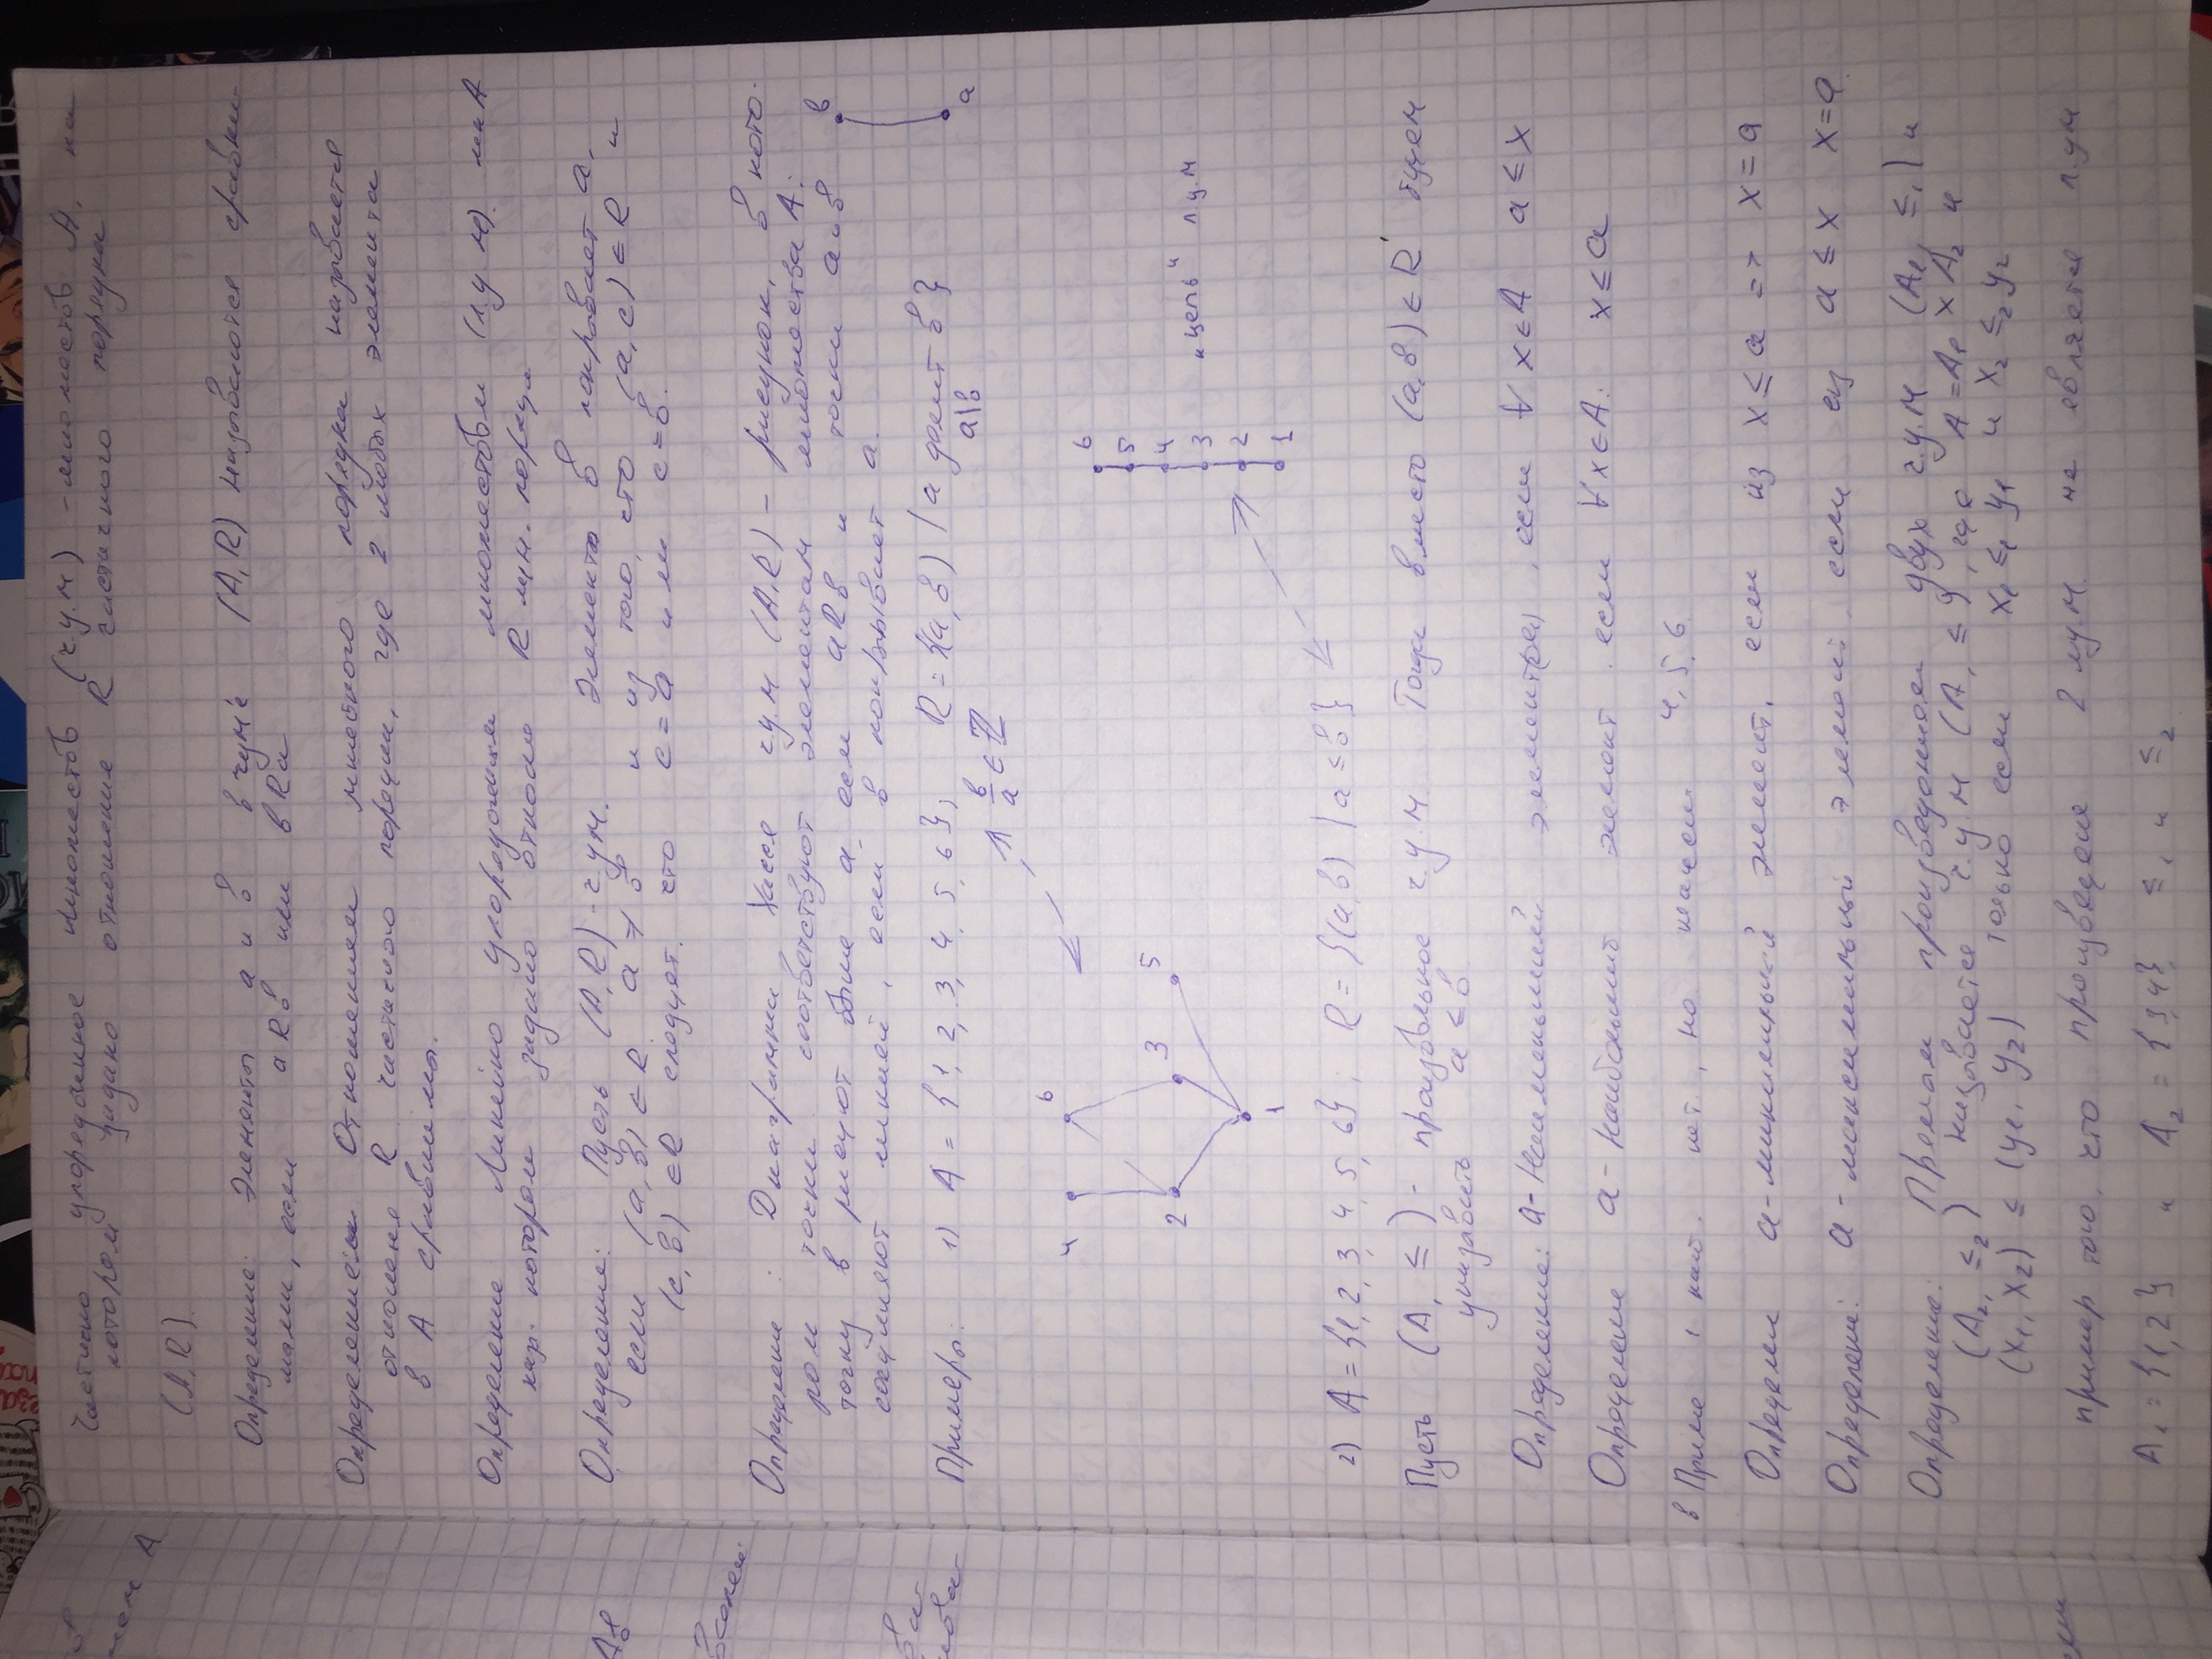 Частично упорядоченное множество (ч.у.м) - множество A, на
котором задано отношение R частичного порядка
(A, R).
Определение: Элементы a и b в чум'е (A, R) называются сравни-
мыми, если aRb или bRa
Определение: Отношением линейного порядка называется
отношения R частичного порядка, где 2 любых элемента
в A сравнимы.
Определение Линейно упорядоченным множеством (л.у.м). мн A
наз. котором задано отноше R лин. порядк
Определение: Пусть (A, R) - ч.у.м. Элемент b покрывает a,
если (a, b) ∈ R, a ≠ b и из того, что (a, c) ∈ R и
(c, b) ∈ R следует, что c = a или c = b.
Определение: Диаграмма Хассе ч.у.м (A, R) - рисунок, в кото-
ром точки соответствуют элементам множества A:
точку b рисуют выше a, если aRb и точки a и b
соединяют линией, если b покрывает a.
b
a
Примеры: 1) A = {1, 2, 3, 4, 5, 6}; R = {(a, b) | a делит b}
a|b
b/a ∈ ℤ
4 6
2 3 5
1
6
5
4
3
2
1
„цепь“ л.у.м
2) A = {1, 2, 3, 4, 5, 6}; R = {(a, b) | a ≤ b}
Пусть (A, ≤) - произвольное ч.у.м. Тогда вместо (a, b) ∈ R будем
указывать a ≤ b.
Определение: a - Наименьший элемент, если ∀ x ∈ A a ≤ x
Определение a - наибольший элемент если ∀ x ∈ A: x ≤ a
в Приме 1 наиб. нет, но 4, 5, 6.
Определен a - минимальный элемент, если из x ≤ a => x = a
Определени: a - максимальный элемент, если из a ≤ x x = a
Определение: Прямым произведением двух ч.у.м (A₁, ≤₁) и
(A₂, ≤₂) называется ч.у.м (A, ≤), где A = A₁ × A₂ и
(x₁, x₂) ≤ (y₁, y₂) только если x₁ ≤₁ y₁ и x₂ ≤₂ y₂
пример того, что произведение 2 лу.м. не является л.у.м
A₁ = {1, 2} и A₂ = {3, 4}, ≤₁ и ≤₂